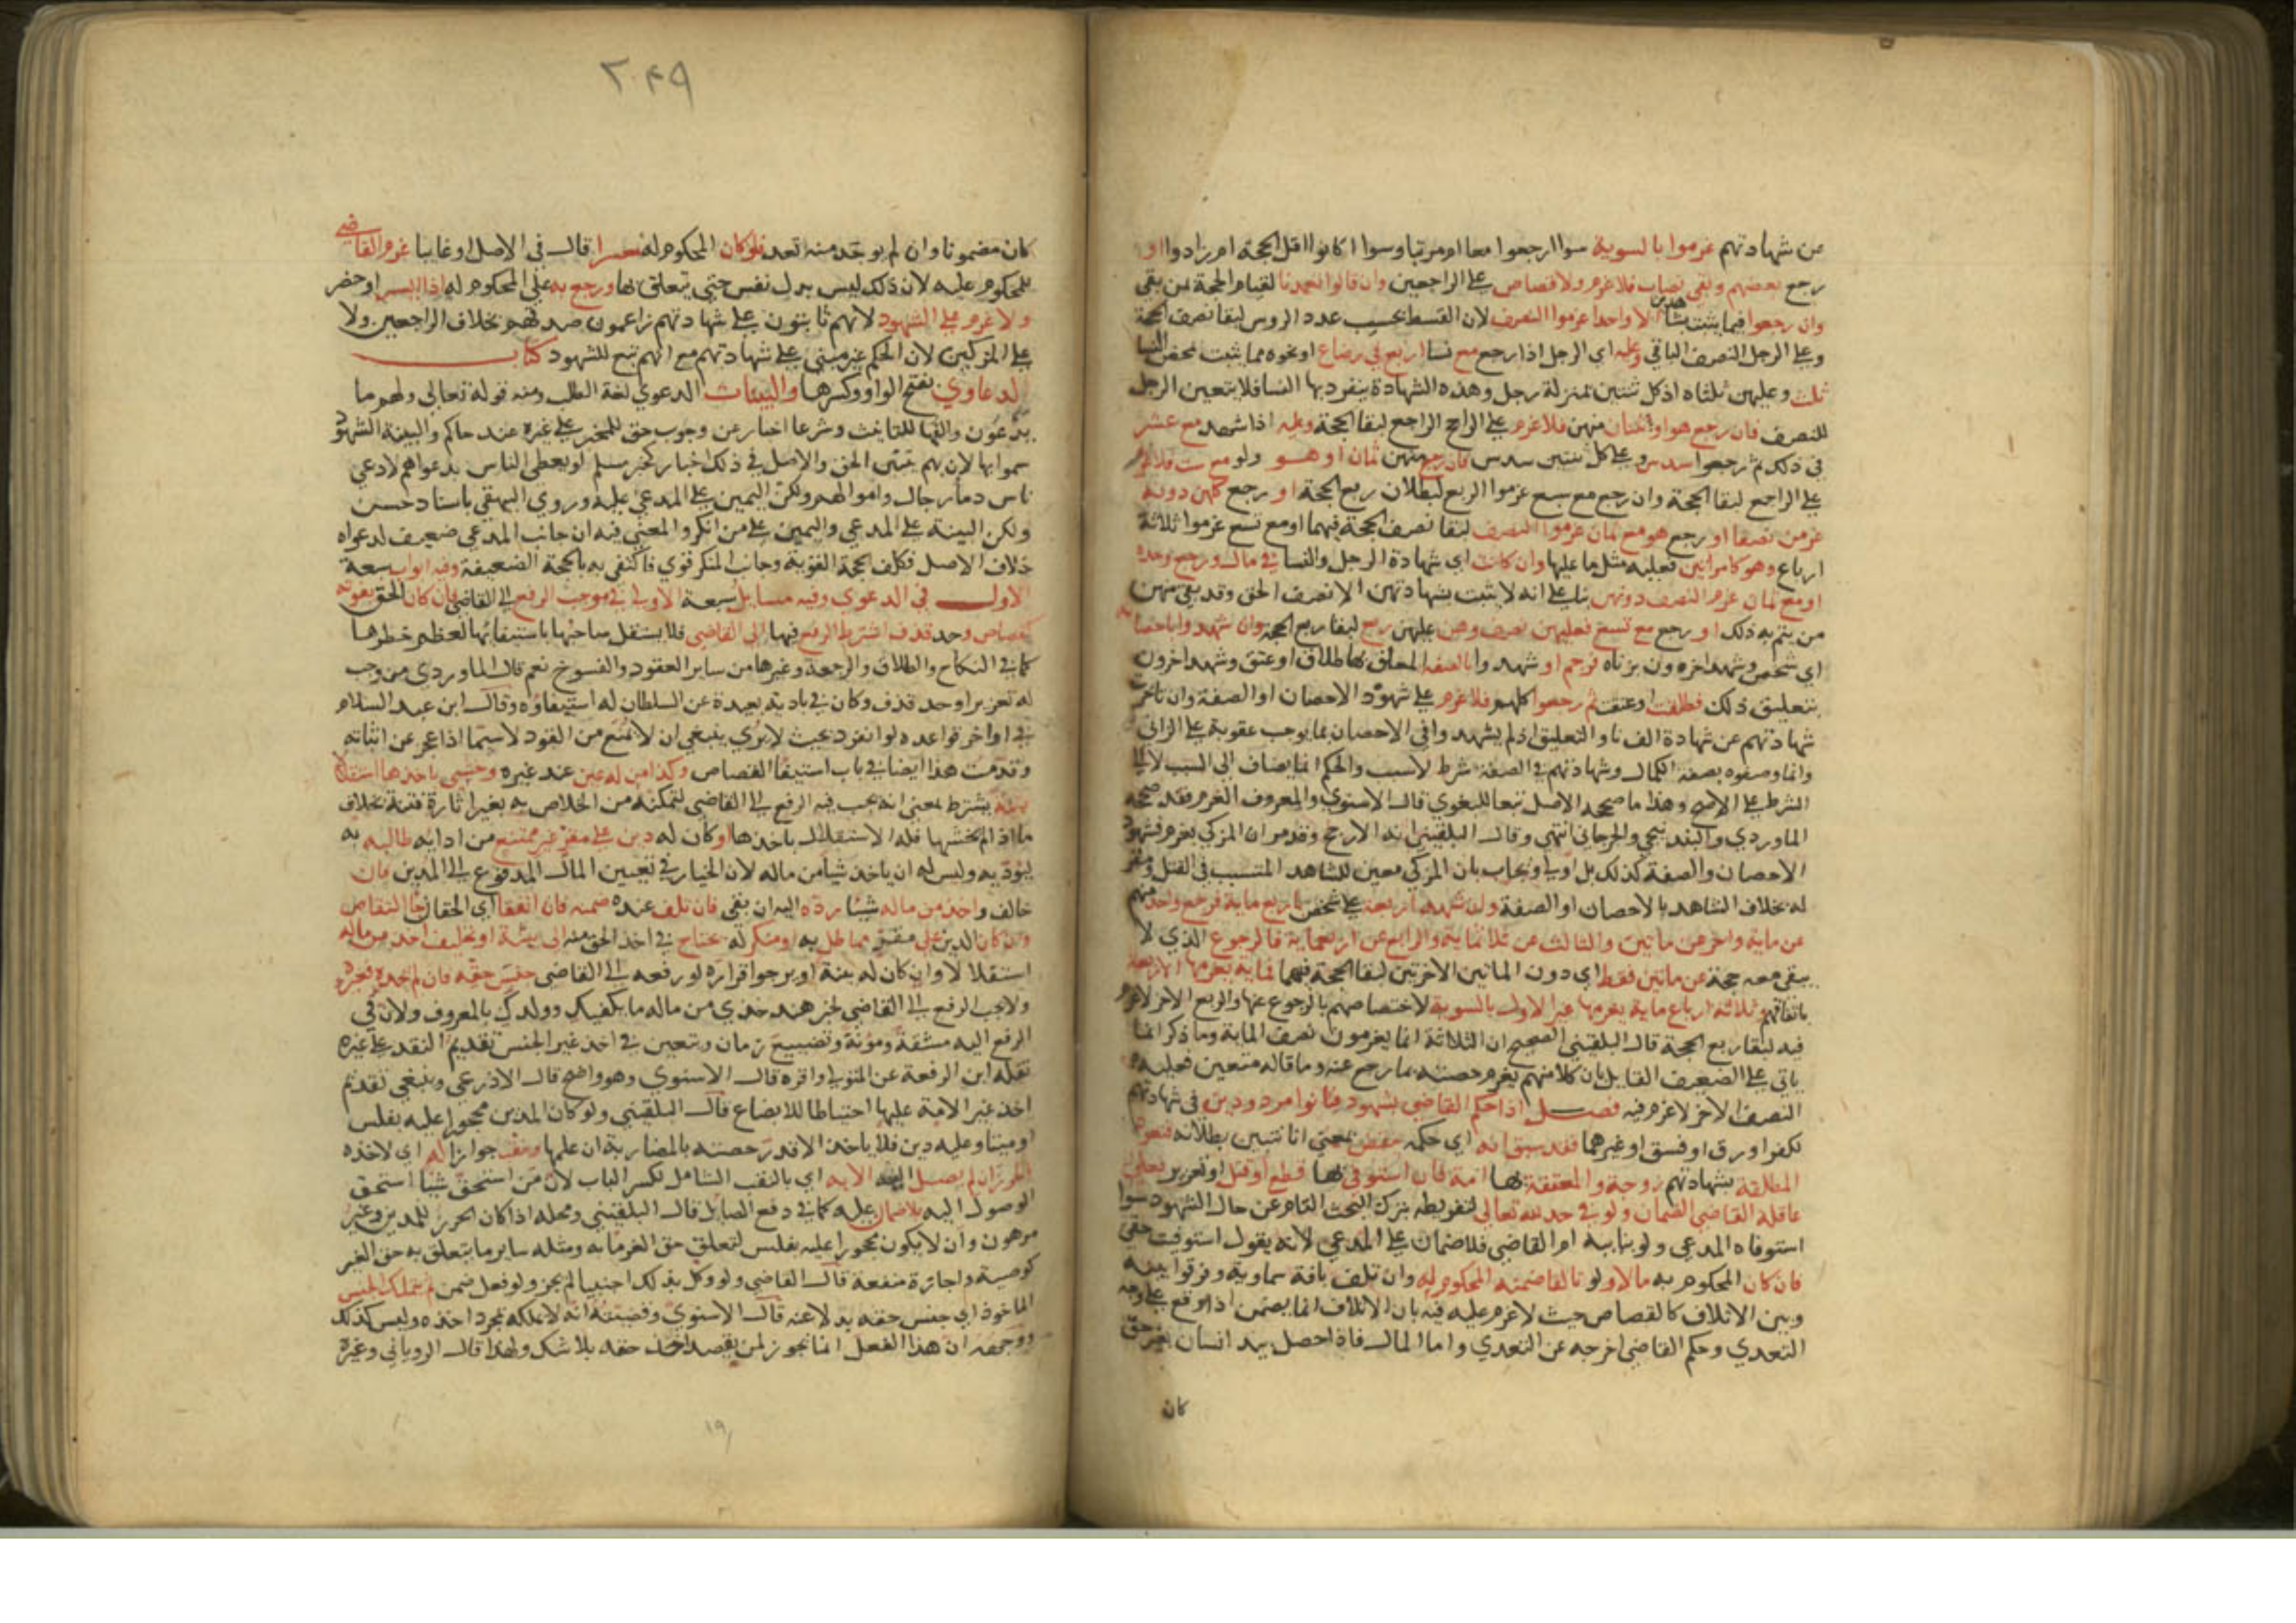 من شهادتهم غرموا بالسوية سوا ارجعوا معا ام مرتبا وسوا اكانوا اقل الحجة ام زادوا او
رجع بعضهم وبقى نصاب فلا غرم ولا قصاص على الراجعين وان قالوا تعمدنا لقيام الحجة بمن بقى
وان رجعوا فيما يثبت بشاهدين الا واحدا غرموا النصف لان القسط بحسب عدد الروس لبقا نصف الحجة
وعلى الرجل النصف الباقي وعليه اى الرجل اذا رجع مع نسا اربع في رضاع او نحوه مما يثبت بمحض النسا
ثلث وعليهن ثلثاه اذ كل ثنتين بمنزلة رجل وهذه الشهادة ينفرد بها النسا فلا يتعين الرجل
للنصف فان رجع هو او ثنتان منهن فلا غرم على الراجع لبقا الحجة وعليه اذا شهد مع عشر
في ذلك ثم رجعوا سدس وعلى كل ثنتين سدس فان رجع منهن ثمان او هو ولو مع ست فلا غرم
على الراجع لبقا الحجة وان رجع مع سبع غرموا الربع لبطلان ربع الحجة او رجع كلهن دونه
غرمن نصفا او رجع هو مع ثمان غرموا النصف لبقا نصف الحجة فيهما او مع تسع غرموا ثلاثة
ارباع وهو كامراتين فعليه مثل ما عليها وان كانت اى شهادة الرجل والنسا في مال ورجع وحده
او مع ثمان غرم النصف دونهن بنا على انه لا يثبت بشهادتهن الا نصف الحق وقد بقى منهن
من يتم به ذلك او رجع مع تسع فعليهن ربع لبقا ربع الحجة وان شهدوا باحصانه
اى شخص وشهد اخرون بزناه فرجم او شهدوا بالصفة المعلق بها طلاق او عتق وشهد اخرون
بتعليق ذلك فطلقت او عتقت ثم رجعوا كلهم فلا غرم على شهود الاحصان او الصفة وان تاخرت
شهادتهم عن شهادة الزنا والتعليق اذ لم يشهدوا في الاحصان بما يوجب عقوبة على الزانى
وانما وصفوه بصفة الكمال وشهادتهم في الصفة شرط لا سبب والحكم انما يضاف الى السبب لا الى
الشرط على الاصح وهذا ما صححه الاصل تبعا للبغوي قال الاسنوي والمعروف الغرم فقد صححه
الماوردي والبندنيجي والجرجاني انتهى وقال البلقيني انه الارجح وقد مر ان المزكى يغرم فشهود
الاحصان والصفة كذلك بل اولى ويجاب بان المزكى معين للشاهد المتسبب في القتل ومقو
له بخلاف الشاهد بالاحصان او الصفة ولو شهد اربعة على شخص باربع ماية فرجع واحد منهم
عن ماية واخر عن ماتين والثالث عن ثلاثماية والرابع عن اربعماية فالرجوع الذي لا
يبقى معه حجة عن ماتين فقط اى دون الماتين الاخرتين لبقا الحجة فيهما فماية يغرمها الاربعة
باتفاقهم وثلاثة ارباع ماية يغرمها غير الاول بالسوية لاختصاصهم بالرجوع عنها والربع الاخر لا غرم
فيه لبقا ربع الحجة قال البلقيني الصحيح ان الثلاثة انما يغرمون نصف الماية وما ذكر انما
ياتي على الضعيف القايل بان كلا منهم يغرم حصته مما رجع عنه وما قاله متعين فعليه
النصف الاخر لا غرم فيه فصل اذا حكم القاضي بشهود فبانوا مردودين في شهادتهم
لكفر او رق او فسق او غيرهما فقد سبق انه اى حكمه ينتقض بمعنى انا نتبين بطلانه فتعود
المطلقة بشهادتهم زوجة والمعتقة بها امة فان استوفى بها قطع او قتل او تعزير فعلى
عاقلة القاضي الضمان ولو في حد لله تعالى لتفريطه بترك البحث التام عن حال الشهود سوا
استوفاه المدعي ولو بنايبه ام القاضي فلا ضمان على المدعي لانه يقول استوفيت حقى
فان كان المحكوم به مالا ولو تالفا ضمنه المحكوم له وان تلف بافة سماوية وفرقوا بينه
وبين الاتلاف كالقصاص حيث لا غرم عليه فيه بان الاتلاف انما يضمن اذا وقع على وجه
التعدي وحكم القاضي اخرجه عن التعدي واما المال فاذا حصل بيد انسان بغير حق
كان
٢٠٤٩
كان مضمونا وان لم يوجد منه تعد فلو كان المحكوم له معسرا قال في الاصل او غايبا غرم القاضي
للمحكوم عليه لان ذلك ليس بدل نفس حتى يتعلق بها ورجع به على المحكوم له اذا ايسر او حضر
ولا غرم على الشهود لانهم ثابتون على شهادتهم زاعمون صدقهم بخلاف الراجعين ولا
على المزكين لان الحكم غير مبنى على شهادتهم مع انهم تبع للشهود كتاب
الدعاوي بفتح الواو وكسرها والبينات الدعوي لغة الطلب ومنه قوله تعالى ولهم ما
يدعون والفها للتانيث وشرعا اخبار عن وجوب حق للمخبر على غيره عند حاكم والبينة الشهود
سموا بها لان بهم يتبين الحق والاصل في ذلك اخبار كخبر مسلم لو يعطى الناس بدعواهم لادعى
ناس دما رجال واموالهم ولكن اليمين على المدعى عليه وروي البيهقي باسناد حسن
ولكن البينة على المدعي واليمين على من انكر والمعنى فيه ان جانب المدعي ضعيف لدعواه
خلاف الاصل فكلف الحجة القوية وجانب المنكر قوي فاكتفى به بالحجة الضعيفة وفيه ابواب سبعة
الاول في الدعوي وفيه مسايل سبعة الاولى في موجب الرفع الى القاضي فان كان الحق عقوبة
كقصاص وحد قذف اشترط الرفع فيها الى القاضي فلا يستقل صاحبها باستيفائها لعظم خطرها
كما في النكاح والطلاق والرجعة وغيرها من ساير العقود والفسوخ نعم قال الماوردي من وجب
له تعزير او حد قذف وكان في بادية بعيدة عن السلطان له استيفاؤه وقال ابن عبد السلام
في اواخر قواعده لو انفرد بحيث لا يرى ينبغي ان لا يمنع من القود لاسيما اذا عجز عن اثباته
وتقدمت هذا ايضا في باب استيفا القصاص وكذا من له عين عند غيره وخشي باخذها استقلالا
فتنة يشترط بمعنى انه يجب فيه الرفع الى القاضي لتمكنه من الخلاص به بغير اثارة فتنة بخلاف
ما اذا لم يخشها فله الاستقلال باخذها او كان له دين على مقر غير ممتنع من ادايه طالبه به
ليؤديه وليس له ان ياخذ شيا من ماله لان الخيار في تعيين المال المدفوع الى المدين فان
خالف واخذ من ماله شيئا رده اليه ان بقى فان تلف عنده ضمنه فان اتفقا اى الحقان جا التقاص
وان كان الدين على مقر مماطل به او منكر له يحتاج في اخذ الحق منه الى بينة او تحليف اخذ من ماله
استقلالا وان كان له بينة او يرجوا قراره لو رفعه الى القاضي جنس حقه فان لم يجده فغيره
ولا يجب الرفع الى القاضي لخبر هند خذي من ماله ما يكفيك وولدك بالمعروف ولان في
الرفع اليه مشقة ومؤنة وتضييع زمان ويتعين في اخذ غير الجنس تقديم النقد على غيره
نقله ابن الرفعة عن المتولي واقره قال الاسنوي وهو واضح قال الاذرعي وينبغي تقديم
اخذ غير الامة عليها احتياطا للابضاع قال البلقيني ولو كان المدين محجورا عليه بفلس
او ميتا وعليه دين فلا ياخذ الا قدر حصته بالمضاربة ان علمها ونقب جوازا له اى لاخذه
الحرز ان لم يصل اليه الا به اى بالنقب الشامل لكسر الباب لان من استحق شيا استحق
الوصول اليه بلا ضمان عليه كما في دفع الصايل قال البلقيني ومحله اذا كان الحرز للمدين وغير
مرهون وان لا يكون محجورا عليه بفلس لتعلق حق الغرما به ومثله ساير ما يتعلق به حق الغير
كوصية واجارة منفعة قال القاضي ولو وكل بذلك اجنبيا لم يجز ولو فعل ضمن ثم يتملك الجنس
الماخوذ اى جنس حقه بدلا عنه قال الاسنوي وقضيته انه لا يملكه بمجرد اخذه وليس كذلك
ووجهه ان هذا الفعل انما يجوز لمن يقصد اخذ حقه بلا شك ولهذا قال الروياني وغيره
١٩